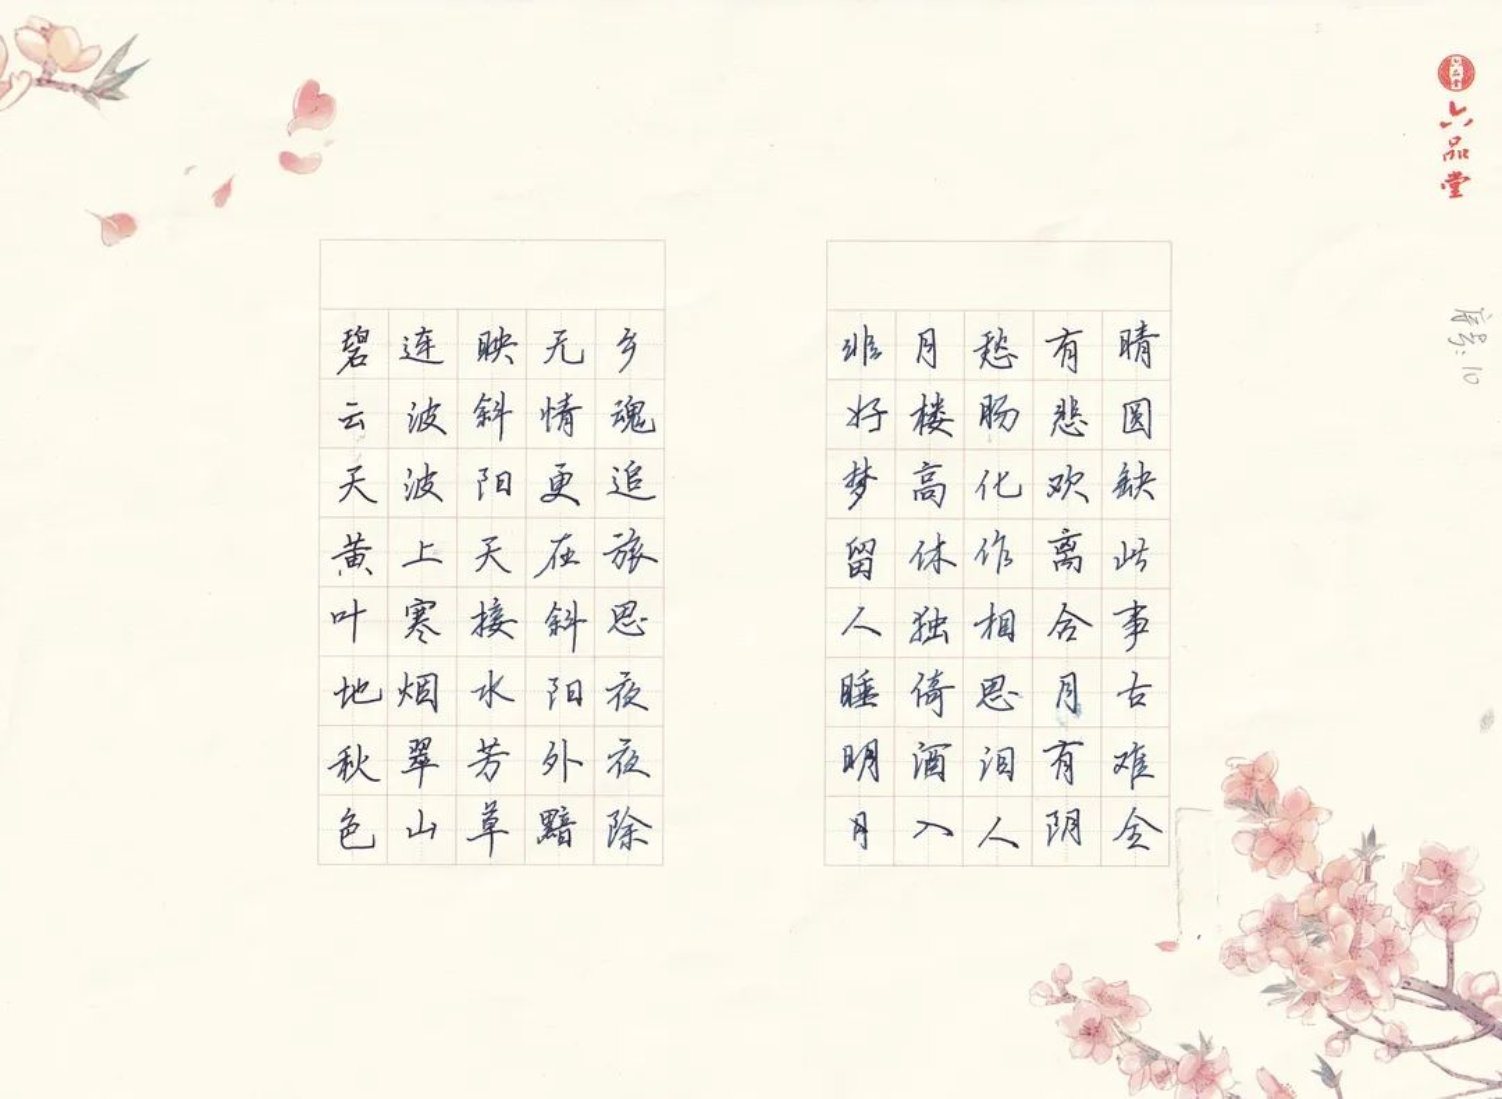 碧云天黄叶地秋色
连波波上寒烟翠山
映斜阳天接水芳草
无情更在斜阳外黯
乡魂追旅思夜夜除
非好梦留人睡明月
月楼高休独倚酒入
愁肠化作相思泪人
有悲欢离合月有阴
晴圆缺此事古难全
六品堂
六品堂
序号:10